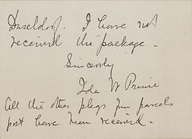 Dusseldorf. I have not
received the package.
Sincerely
Ida W Prime
All the other plugs from parcels
post have been received.